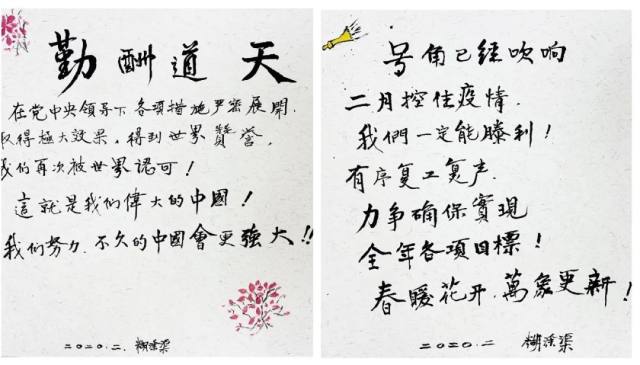 勤酬道天
在党中央领导下各项措施严密展開.
取得極大效果,得到世界贊誉,
我们再次被世界認可!
這就是我们偉大的中國!
我们努力.不久的中國會更強大!!
二〇二〇.二.糊塗梁
号角已经吹响
二月控住疫情.
我們一定能勝利!
有序复工复声.
力争确保實現
全年各项目標!
春暖花开.萬象更新!
二〇二〇.二 糊塗梁